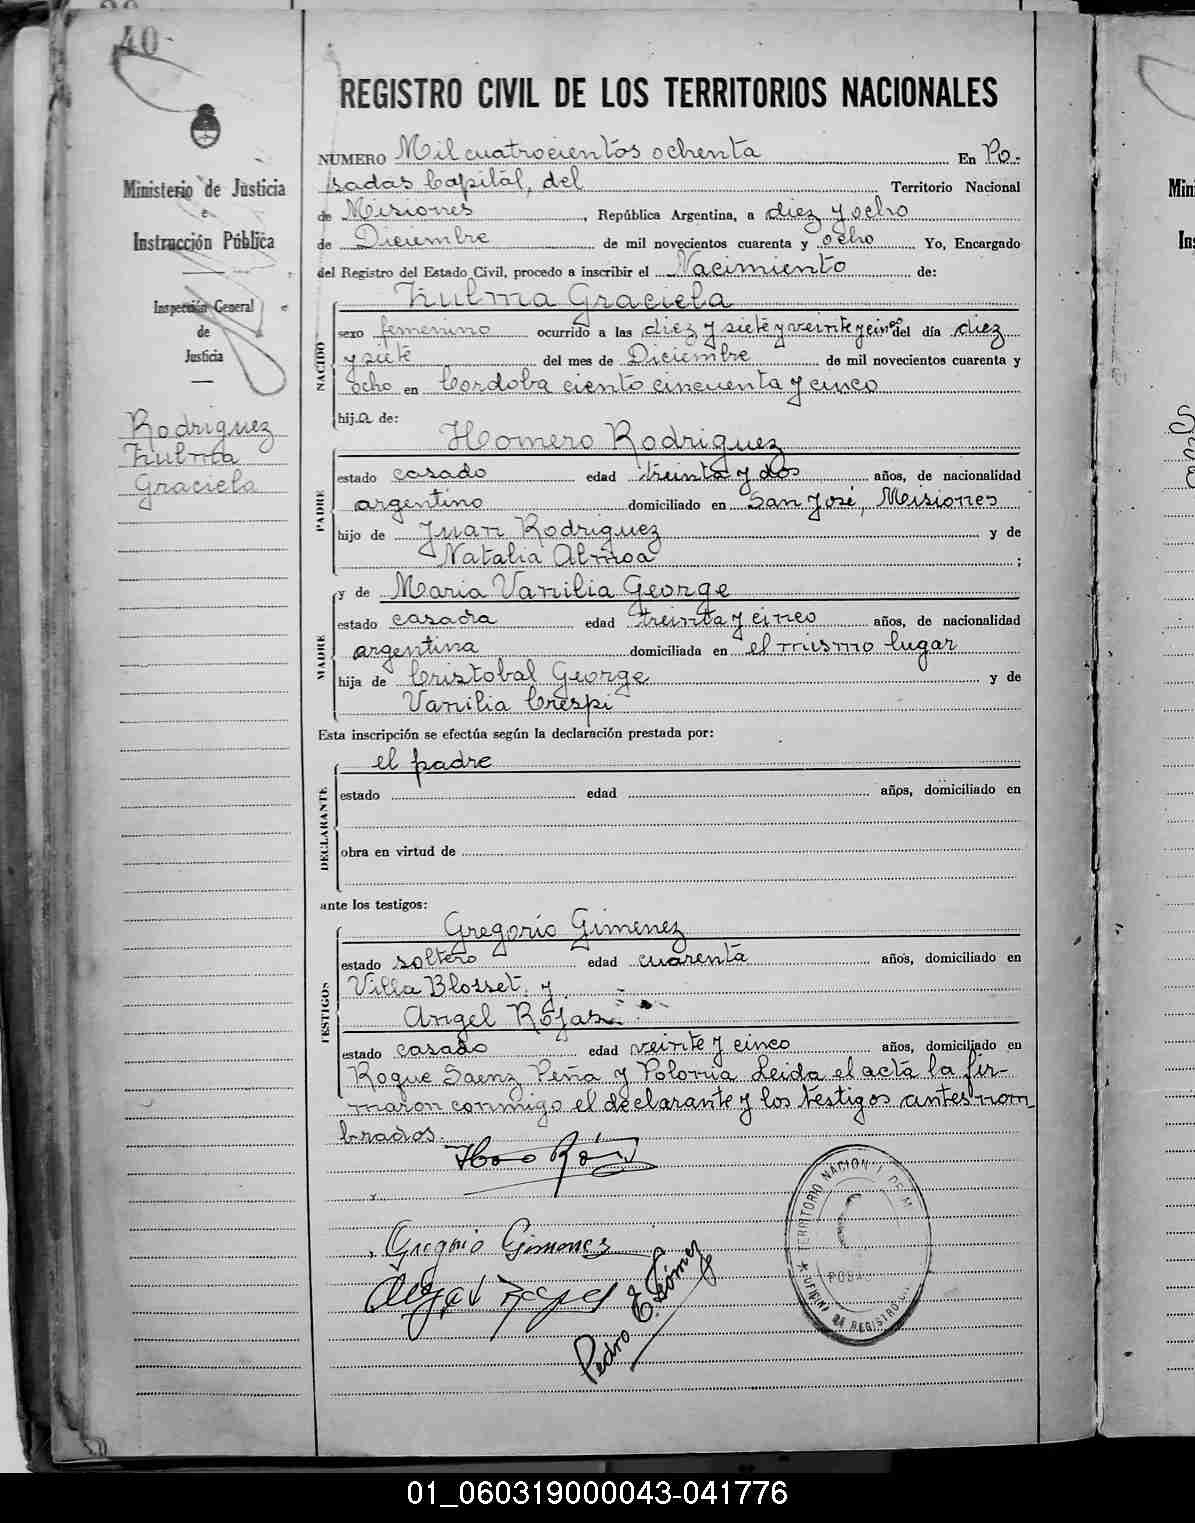 40-
Ministerio de Justicia
e
Instrucción Pública
Inspección General
de
Justicia
Rodriguez
Zulma
Graciela
REGISTRO CIVIL DE LOS TERRITORIOS NACIONALES
NUMERO Mil cuatrocientos ochenta En Po-
sadas Capital, del Territorio Nacional
de Misiones, República Argentina, a diez y ocho
de Diciembre de mil novecientos cuarenta y ocho Yo, Encargado
del Registro del Estado Civil, procedo a inscribir el Nacimiento de:
NACIDO
Zulma Graciela
sexo femenino ocurrido a las diez y siete y veinte y cinco del día diez
y siete del mes de Diciembre de mil novecientos cuarenta y
ocho en Cordoba ciento cincuenta y cinco
hija de:
PADRE
Homero Rodriguez
estado casado edad treinta y dos años, de nacionalidad
argentino domiciliado en San José, Misiones
hijo de Juan Rodriguez y de
Natalia Almoa ;
MADRE
y de Maria Vanilia George
estado casada edad treinta y cinco años, de nacionalidad
argentina domiciliada en el mismo lugar
hija de Cristobal George y de
Vanilia Crespi
Esta inscripción se efectúa según la declaración prestada por:
DECLARANTE
el padre
estado edad años, domiciliado en
obra en virtud de
ante los testigos:
TESTIGOS
Gregorio Gimenez
estado soltero edad cuarenta años, domiciliado en
Villa Blosset. y
Angel Rojas
estado casado edad veinte y cinco años, domiciliado en
Roque Saenz Peña y Polonia Leida el acta la fir-
maron conmigo el declarante y los testigos antes nom-
brados.
Gregorio Gimenez
Angel Rojas
Pedro E. Gómez
TERRITORIO NACION L DE M
POSA
OFICINA DE REGISTRO
Min
In
01_060319000043-041776